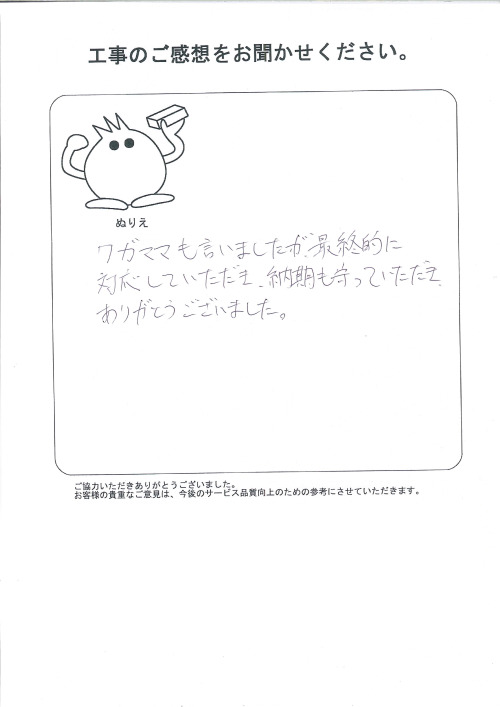 工事のご感想をお聞かせください。
ぬりえ
ワガママも言いましたが、最終的に
対応していただき、納期も守っていただき、
ありがとうございました。
ご協力いただきありがとうございました。
お客様の貴重なご意見は、今後のサービス品質向上のための参考にさせていただきます。